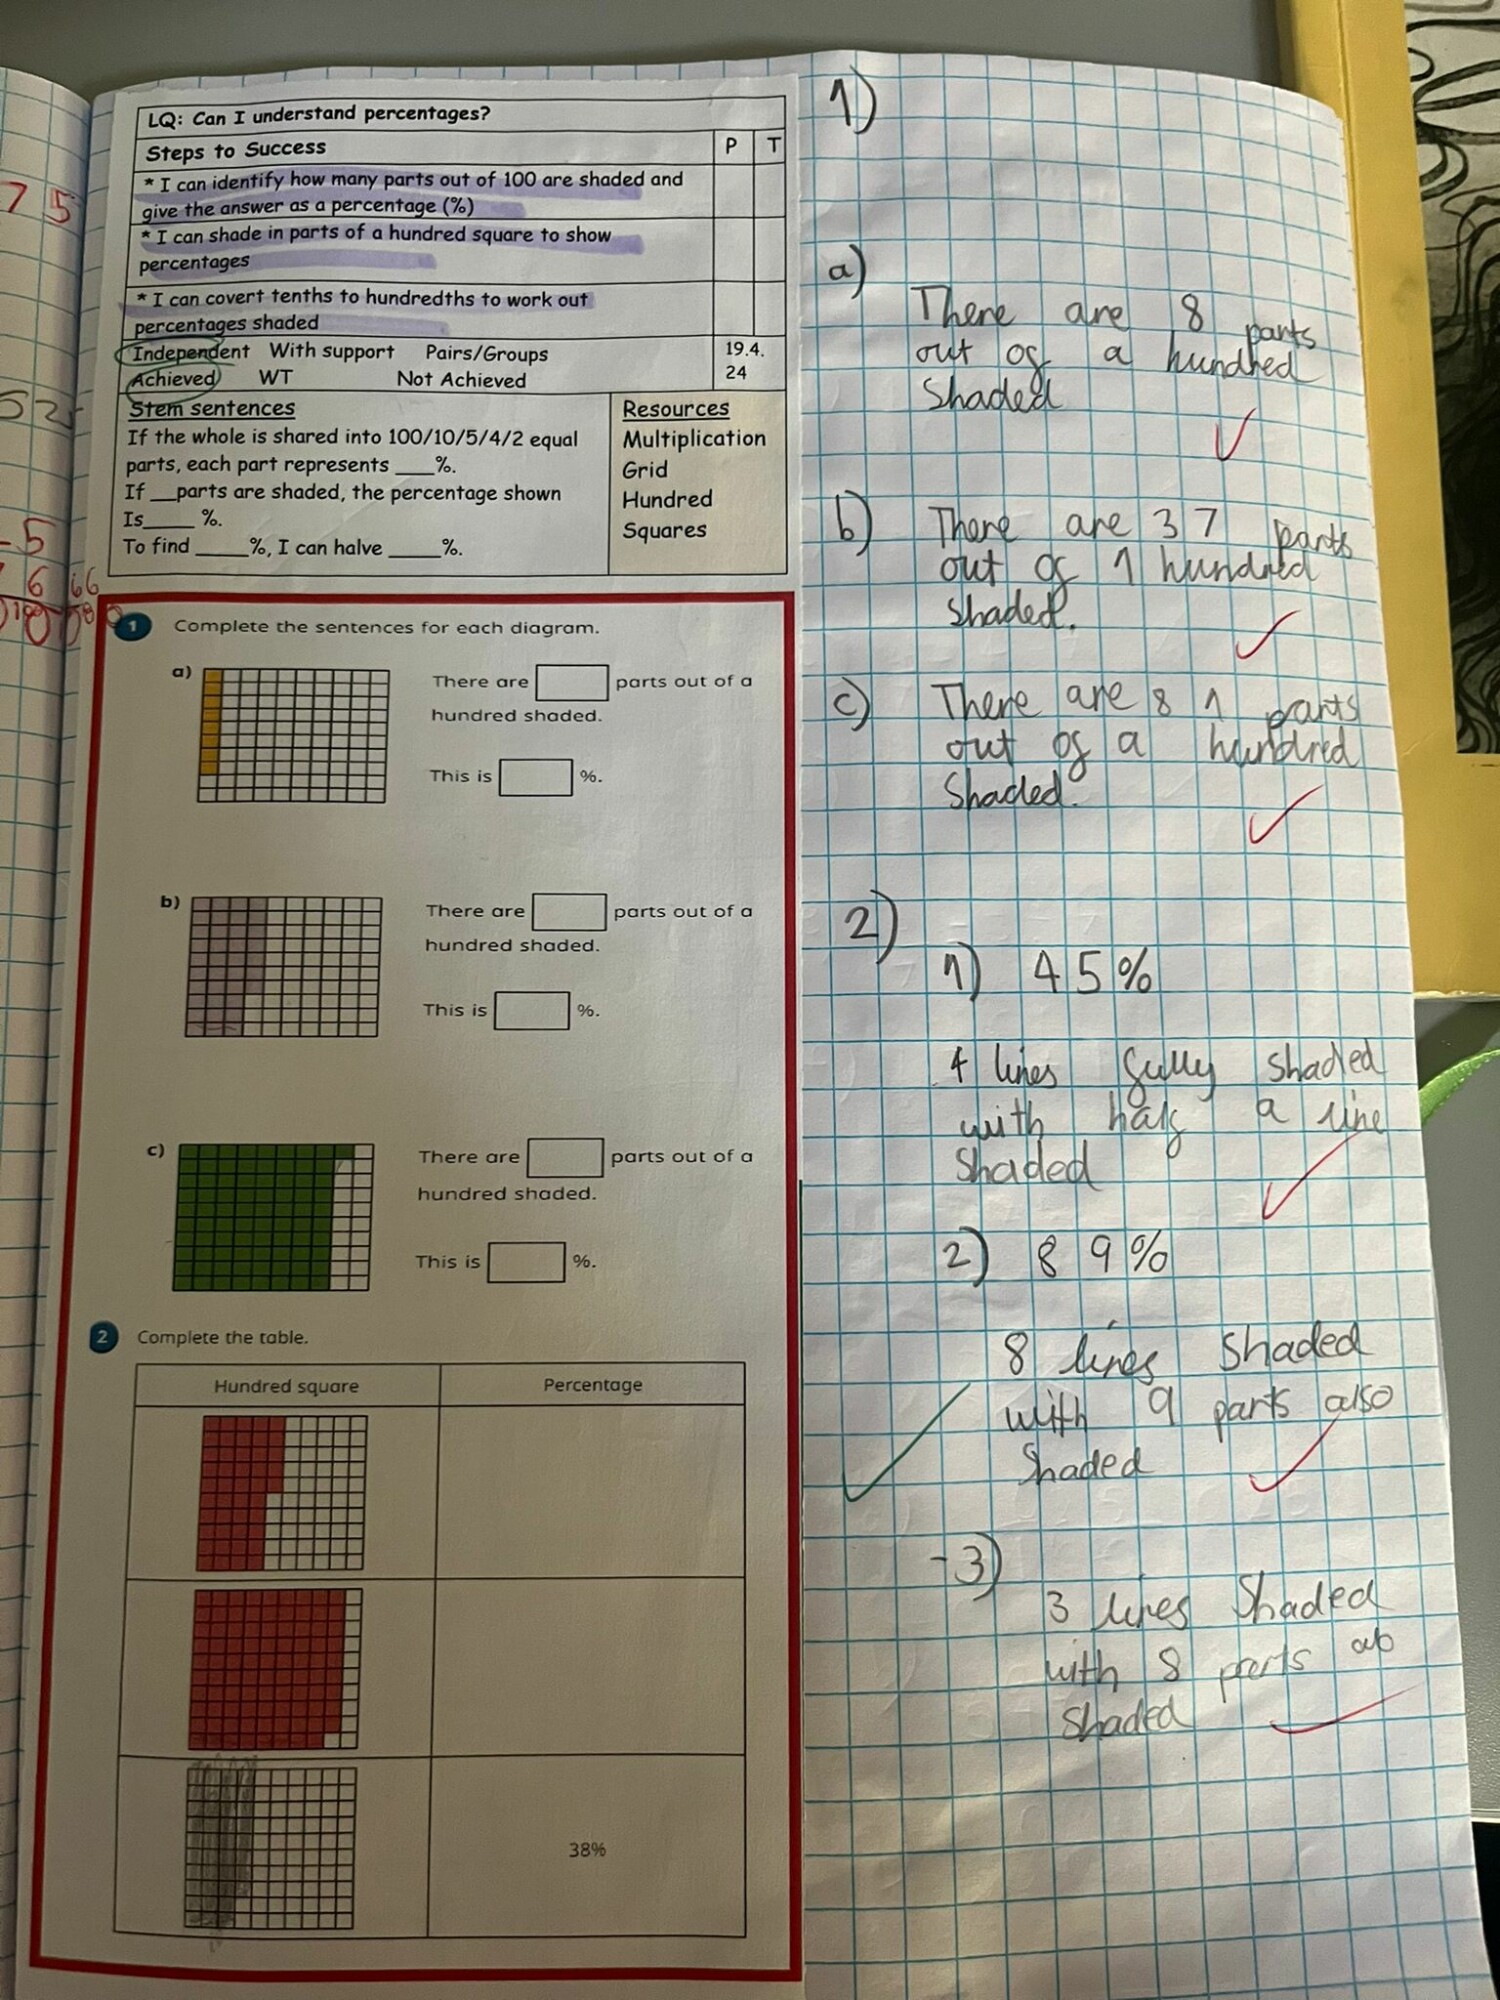 LQ: Can I understand percentages?
Steps to Success
P
T
* I can identify how many parts out of 100 are shaded and
give the answer as a percentage (%)
* I can shade in parts of a hundred square to show
percentages
* I can covert tenths to hundredths to work out
percentages shaded
Independent With support Pairs/Groups
Achieved WT Not Achieved
19.4.
24
Stem sentences
If the whole is shared into 100/10/5/4/2 equal
parts, each part represents ___%.
If __parts are shaded, the percentage shown
Is____ %.
To find ____%, I can halve ____%.
Resources
Multiplication
Grid
Hundred
Squares
1 Complete the sentences for each diagram.
a)
There are parts out of a
hundred shaded.
This is %.
b)
There are parts out of a
hundred shaded.
This is %.
c)
There are parts out of a
hundred shaded.
This is %.
2 Complete the table.
Hundred square
Percentage
38%
1)
a)
There are 8 parts
out of a hundred
shaded
b) There are 37 parts
out of 1 hundred
shaded.
c) There are 81 parts
out of a hundred
shaded.
2)
1) 45%
4 lines fully shaded
with half a line
shaded
2) 89%
8 lines shaded
with 9 parts also
shaded
3)
3 lines shaded
with 8 parts
shaded
75
52
5
6 66